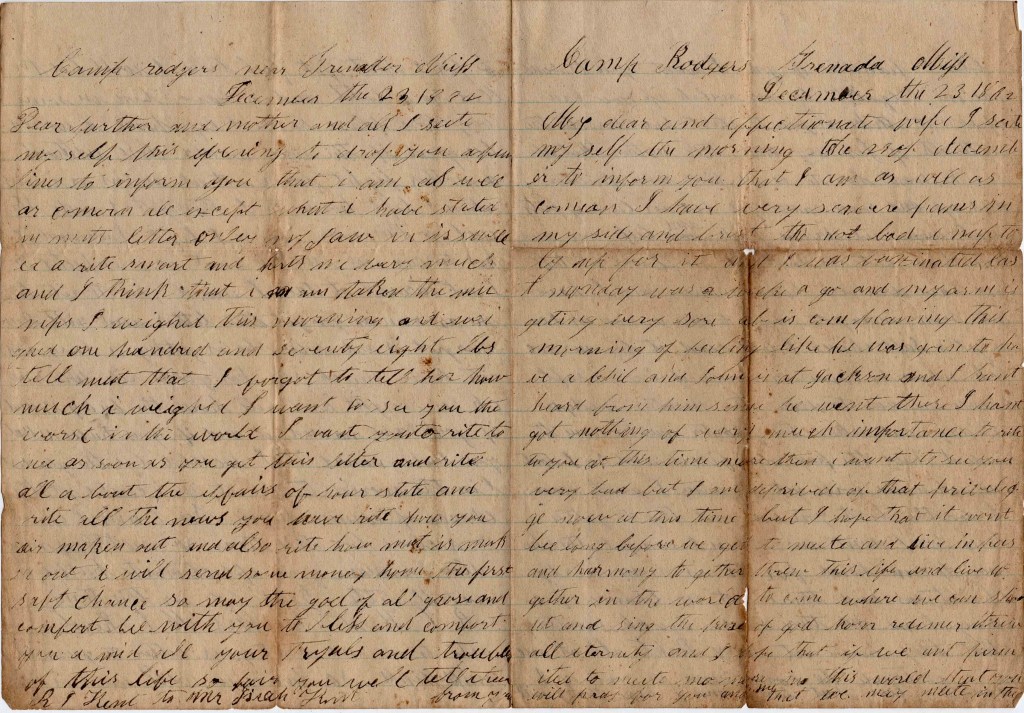 Camp rodgers near Grenador Miss
December the 23 18
Dear farther and mother and all I seete
my self this evening to drop you a few
lines to inform you that i am as well
as comern all except what i have stated
in letter only my Jaw it is swell
ed a rite smart and hurts me very much
and I think that i taken the mu
mps I weighed this morning and wei
ghed one hundred and seventy eight lbs
tell that I forgot to tell her how
much i weighed I want to see you the
worst in the world I want you to rite to
me as soon as you get this letter and rite
all a bout the afairs of your state and
rite all the news you have rite how you
air maken out and also rite how is mak
n out i will send some money home the first
saft chance so may the god of al grose and
comfort be with you to bless and comfort
you a mid all your tryals and trouble
of this life so fair you well
to Mr Kent from
Camp Rodgers Grenada Miss
December the 23 18
My dear and effectionate wife I seete
my self the morning the 23 of decemb
er to inform you that I am as well as
comian I have very severe panes in
my side and brest tho not bad
for it and I was vaxinated las
t monday was a weeke a go and my arm is
geting very sore is complaning this
morning of feeling like he was goin to ha
ve a Chil and John is at Jackson and I hant
heard from him sence he went there I hant
got nothing of much importance to rite
to you at this time more then i want to see you
very bad but I am deprived of that priveleg
ge now at this time but I hope that it wont
bee long before we get to meete and live in peas
and harmony to gether threw this life and live to
gether in the world to come where we can
and sing the praise of god hour redimer threw
all eternity and I hope that if we ant perm
ited to meete no more in this world that
will pray for you and that we may meete in the